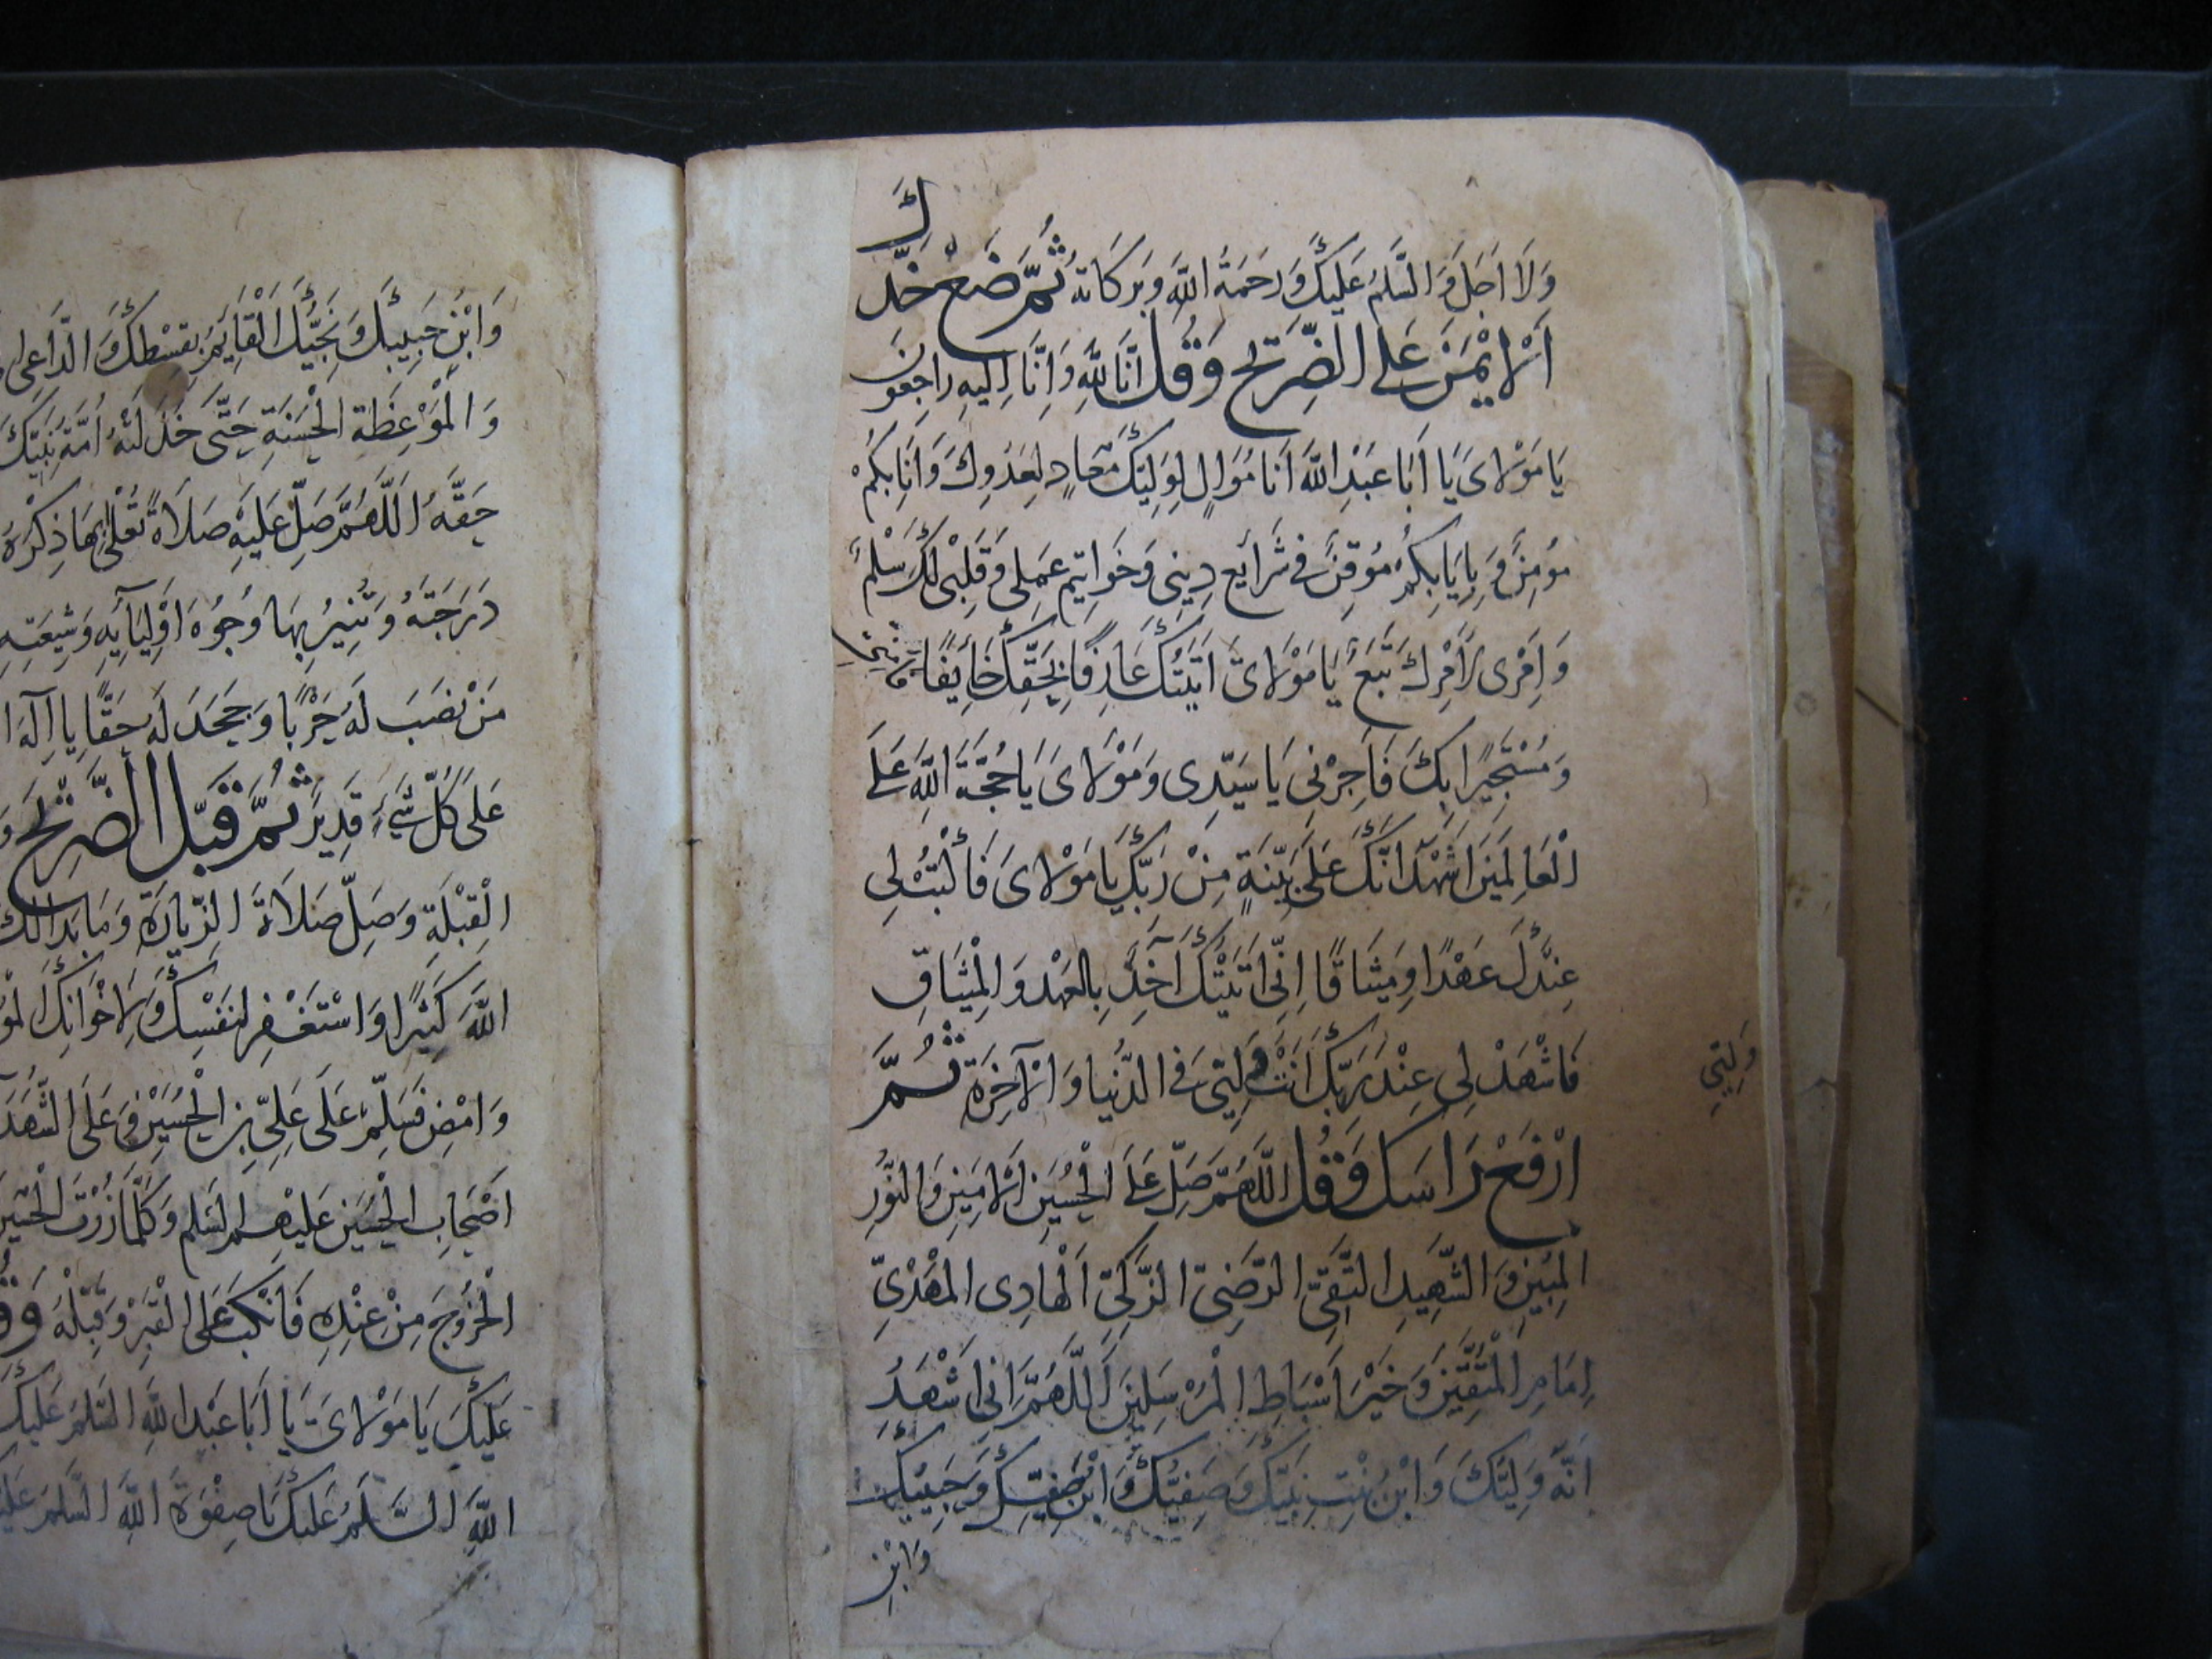 وَلَا اَجَلَ وَالسَّلَمُ عَلَيْكَ وَرَحْمَةُ اللّٰهِ وَبَرَكَاتُهُ ثُمَّ ضَعْ خَدَّكَ
اَلْاَيْمَنَ عَلَى الضَّرِيحِ وَقُلْ اِنَّا لِلّٰهِ وَاِنَّا اِلَيْهِ رَاجِعُونَ
يَا مَوْلَاىَ يَا اَبَا عَبْدِ اللّٰهِ اَنَا مُوَالٍ لِوَلِيِّكَ مُعَادٍ لِعَدُوِّكَ وَاَنَا بِكُمْ
مُؤْمِنٌ وَبِاِيَابِكُمْ مُوقِنٌ فِى شَرَايِعِ دِينِى وَخَوَاتِيمِ عَمَلِى وَقَلْبِى لَكَ سَلْمٌ
وَاَمْرِى لِاَمْرِكَ تَبَعٌ يَا مَوْلَاىَ اَتَيْتُكَ عَارِفًا بِحَقِّكَ خَايِفًا
وَمُسْتَجِيرًا بِكَ فَاَجِرْنِى يَا سَيِّدِى وَمَوْلَاىَ يَا حُجَّةَ اللّٰهِ عَلَى
الْعَالَمِينَ اَشْهَدُ اَنَّكَ عَلَى بَيِّنَةٍ مِنْ رَبِّكَ يَا مَوْلَاىَ فَاكْتُبْ لِى
عِنْدَكَ عَهْدًا وَمِيثَاقًا اِنِّى اَتَيْتُكَ آخُذُ بِالعَهْدِ وَالْمِيثَاقِ
فَاشْهَدْ لِى عِنْدَ رَبِّكَ اَنْتَ وَلِيِّى فِى الدُّنْيَا وَالْآخِرَةِ ثُمَّ
وَلِيِّى
ارْفَعْ رَاسَكَ وَقُلْ اَللّٰهُمَّ صَلِّ عَلَى الْحُسَيْنِ الْاَمِينِ وَالنُّورِ
الْمُبِينِ وَالشَّهِيدِ التَّقِىِّ الرَّضِىِّ الزَّكِىِّ الْهَادِى الْمَهْدِىِّ
اِمَامِ الْمُتَّقِينَ وَخَيْرِ اَسْبَاطِ الْمُرْسَلِينَ اَللّٰهُمَّ اِنِّى اَشْهَدُ
اَنَّهُ وَلِيُّكَ وَابْنُ بِنْتِ نَبِيِّكَ وَصَفِيُّكَ وَابْنُ صَفِيِّكَ وَحَبِيبُكَ
وَابْنُ
وَابْنِ حَبِيبِكَ وَنَجِيِّكَ الْقَايِمُ بِقِسْطِكَ وَالدَّاعِى
وَالْمَوْعِظَةِ الْحَسَنَةِ حَتَّى خَذَلَتْهُ اُمَّةُ نَبِيِّكَ
حَقَّهُ اَللّٰهُمَّ صَلِّ عَلَيْهِ صَلَاةً تُعْلِى بِهَا ذِكْرَهُ
دَرَجَتَهُ وَتُنِيرُ بِهَا وُجُوهَ اَوْلِيَايِهِ وَشِيعَتِهِ
مَنْ نَصَبَ لَهُ حَرْبًا وَجَحَدَ لَهُ حَقًّا يَا اِلَهَ
عَلَى كُلِّ شَىْءٍ قَدِيرٌ ثُمَّ قَبِّلِ الضَّرِيحَ
الْقِبْلَةِ وَصَلِّ صَلَاةَ الزِّيَارَةِ وَمَا بَدَا لَكَ
اللّٰهَ كَثِيرًا وَاسْتَغْفِرْ لِنَفْسِكَ وَلِاِخْوَانِكَ
وَامْضِ فَسَلِّمْ عَلَى عَلِىِّ بْنِ الْحُسَيْنِ وَعَلَى الشُّهَدَا
اَصْحَابِ الْحُسَيْنِ عَلَيْهِمُ السَّلَم وَكُلَّمَا زُرْتَ الْحُسَيْنَ
الْخُرُوجَ مِنْ عِنْدِهِ فَانْكَبَّ عَلَى الْقَبْرِ وَقَبِّلْهُ
عَلَيْكَ يَا مَوْلَاىَ يَا اَبَا عَبْدِ اللّٰهِ السَّلَمُ عَلَيْكَ
اللّٰهِ اَلسَّلَمُ عَلَيْكَ يَا صِفْوَةَ اللّٰهِ السَّلَمُ